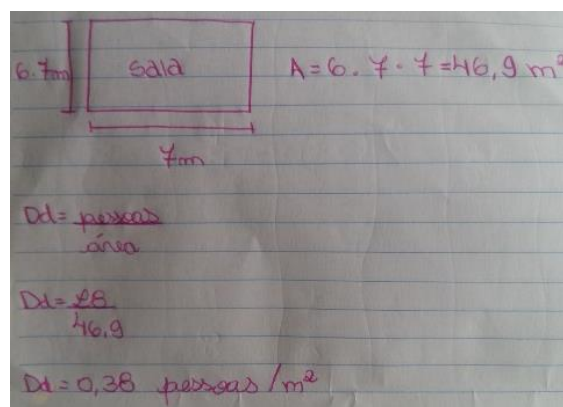 6.7m
Sala
A = 6.7.7 = 46,9 m²
7m
Dd = pessoas
área
Dd = 18
46,9
Dd = 0,38 pessoas/m²